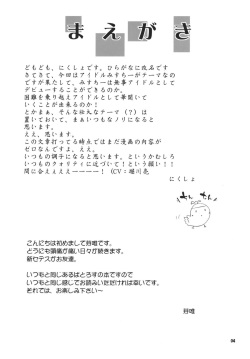 まえがき
どもども、にくしょです。ひらがなに改名です
さてさて、今回はアイドルみすちーがテーマなの
ですが果たして、みすちーは無事アイドルとして
デビューすることができるのか。
困難を乗り越えアイドルとして華開いて
いくことが出来るのか！
とかまぁ、そんな壮大なテーマ（？）は
置いておいて、まぁいつもなノリになると
思います。
ええ、思います。
この文章打ってる時点ではまだ漫画の内容が
ゼロなんで、
いつもの調子になると思います。というかむしろ
いつものクォリティに近づいて下さい！！
間に合ぇぇぇぇーーー！（CV：堀川亮
にくしょ
こんにちは初めまして
どうにも頭痛が痛い日々が続きます。
新セデスがお友達。
いつもと同じあるぱとろすの本ですので
いつもと同じ感じでお読みいただければ幸いです。
それでは、お楽しみ下さい〜
04